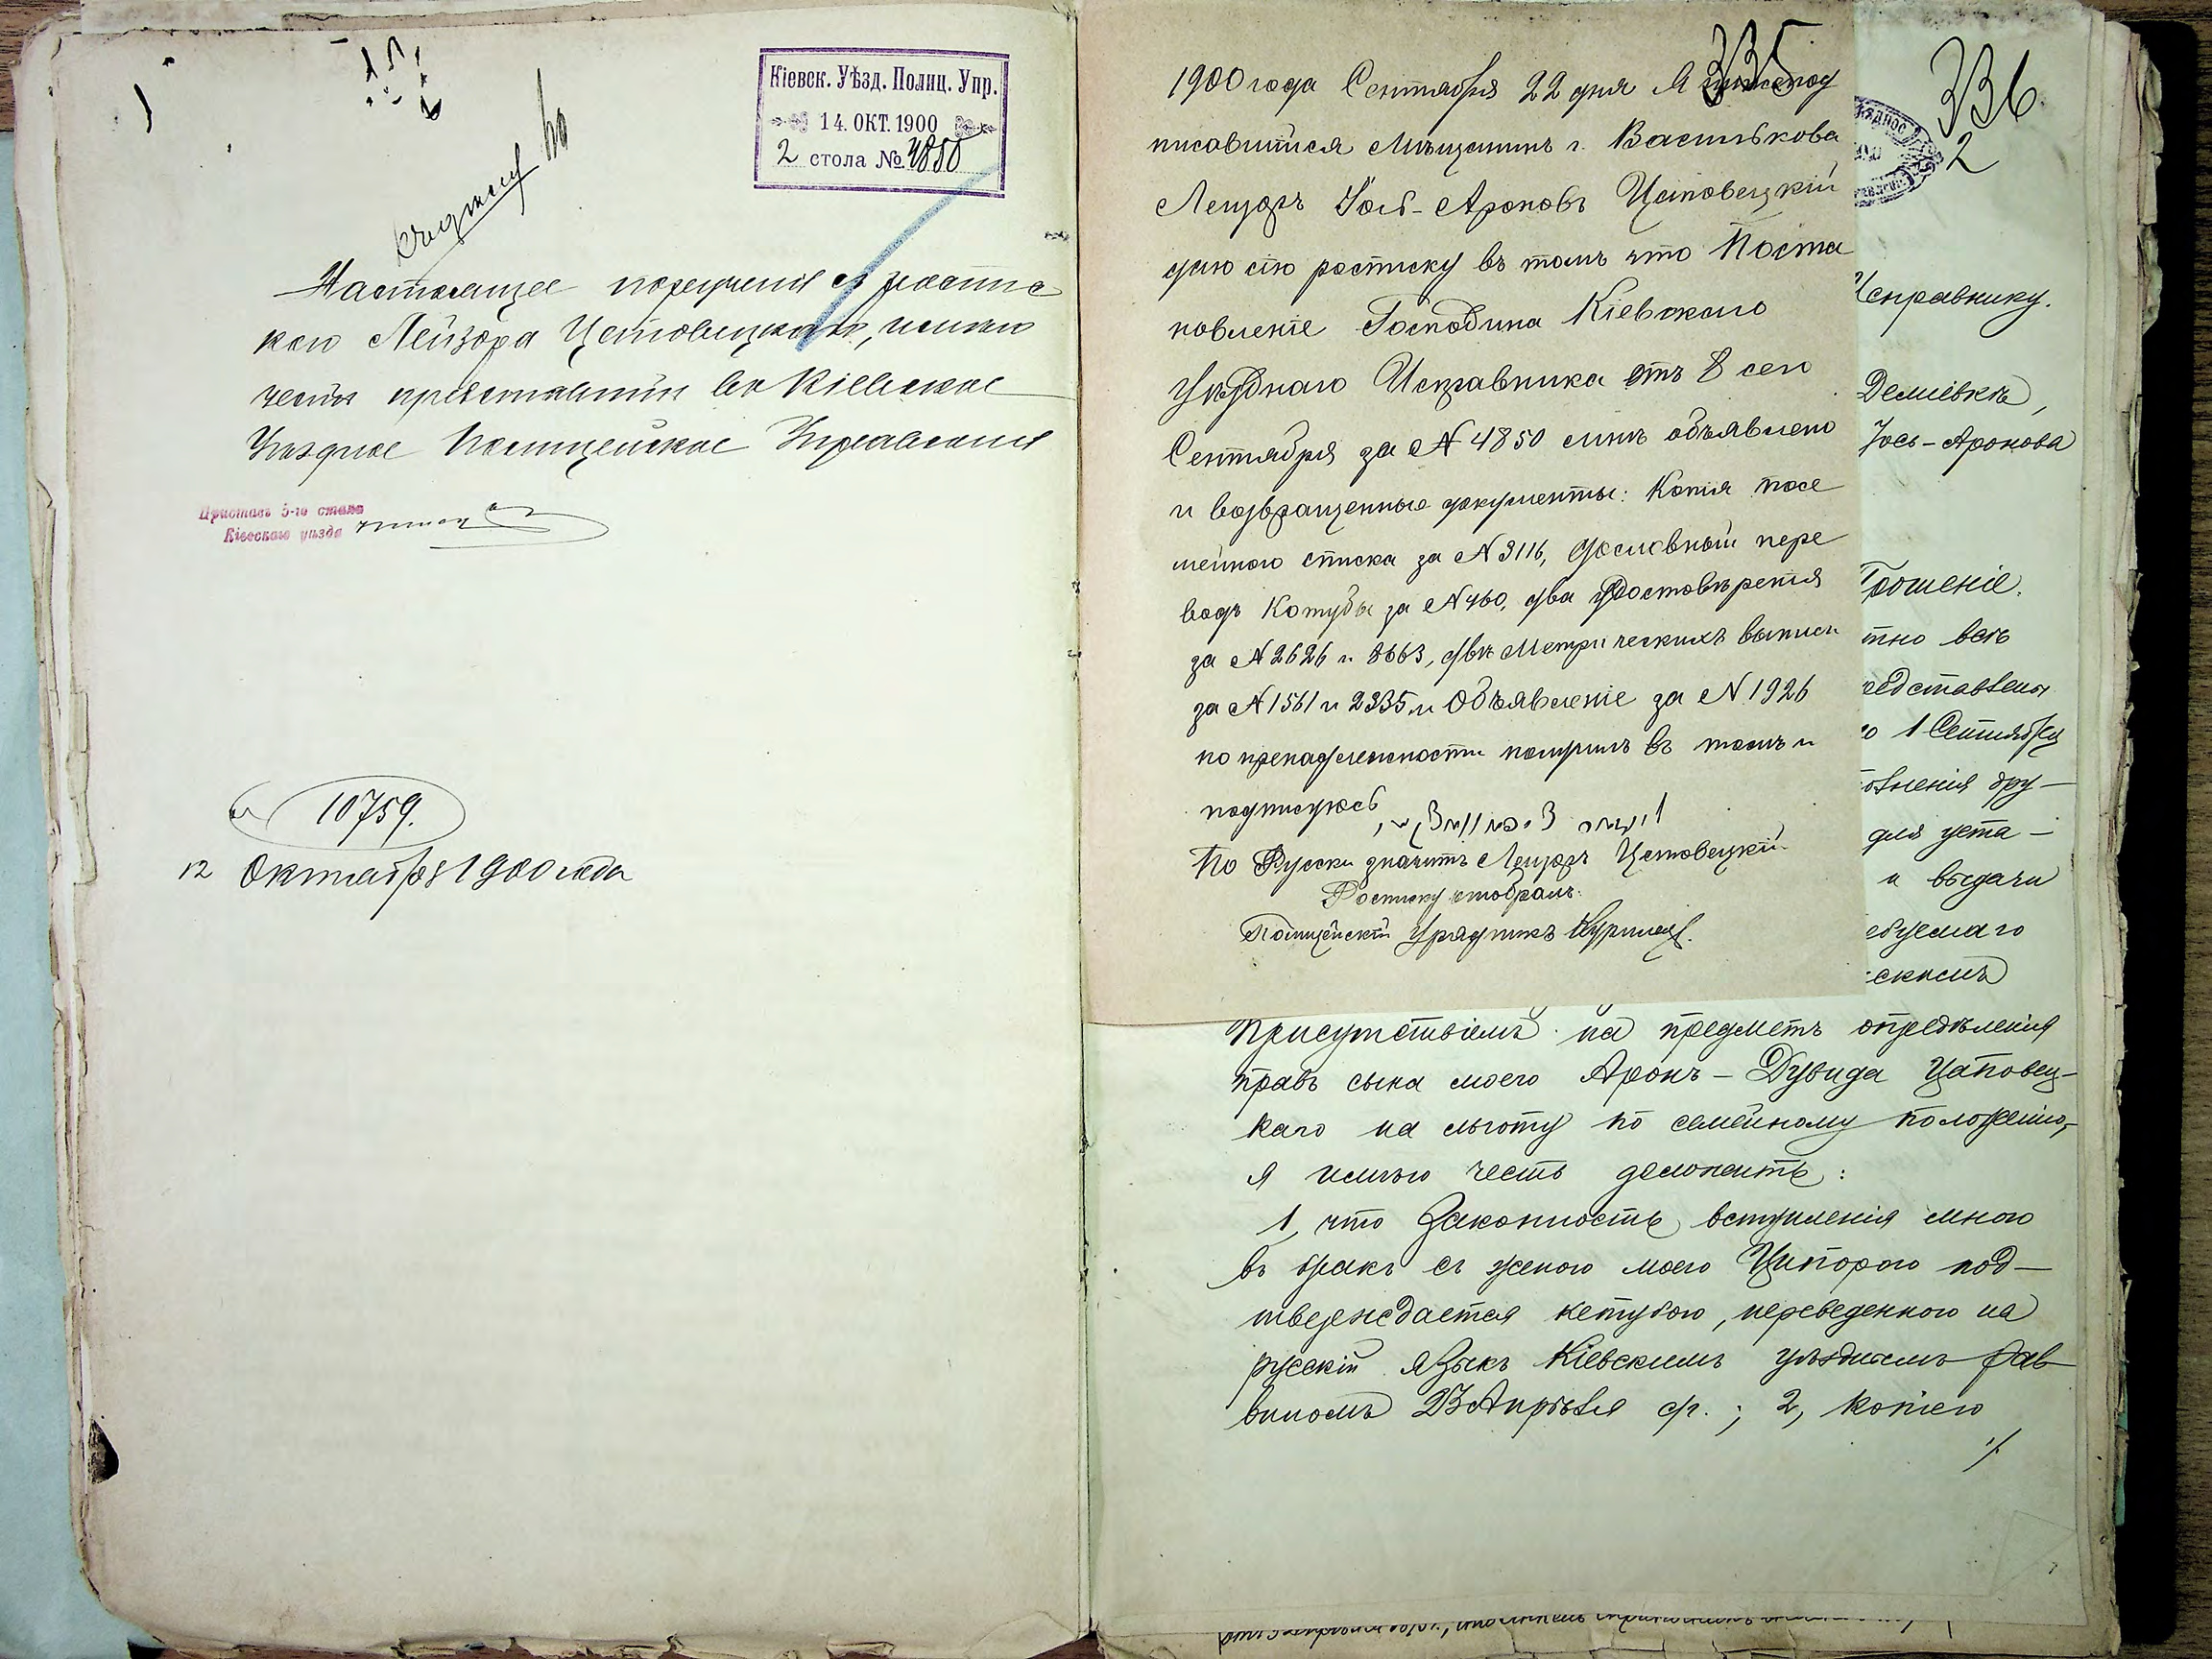 Кіевск. Уѣзд. Полиц. Упр.
14. ОКТ. 1900
2 стола № 4850
Настоящее порученіе съ роспис
кою Лейзора Цеповецкаго, имѣю
честь представить въ Кіевское
Уѣздное Полицейское Управленіе
Приставъ 5-го стана
Кіевскаго уѣзда
10759.
12 Октября 1900 года
335
1900 года Сентября 22 дня Я нижепод
писавшійся Мѣщанинъ г. Василькова
Лейзоръ Іосъ-Ароновъ Цеповецкій
даю сію росписку въ томъ что Поста
новленіе Господина Кіевскаго
Уѣзднаго Исправника отъ 8 сего
Сентября за № 4850 мнѣ объявлено
и возвращенные документы: Копія посе
мейного списка за № 3116, дословный пере
водъ Котубы за № 460, два удостовѣренія
за № 2626 и 8663, двѣ Метрическихъ выписи
за № 1561 и 2335 и Объявленіе за № 1926
по пренадлежности получилъ въ томъ и
подписуюсь
По Русски значитъ Лейзоръ Цеповецкій
Росписку отобралъ
Полицейскій Урядникъ
336
2
Исправнику.
Деміевкѣ,
Іось-Аронова
Прошеніе.
тно всѣ
редставлены
1 Сентября
олненія дру-
для уста-
и выдачи
ебуемаго
скимъ
Присутствіемъ на предметъ опредѣленія
правъ сына моего Аронъ-Дувида Цаповец-
каго на льготу по семейному положенію,
я имѣю честь доложить:
1, что законность вступленія мною
въ бракъ съ женою моею Ципорою под-
тверждается кетубою, переведенною на
русскій языкъ Кіевскимъ уѣзднымъ рав
виномъ 23 Апрѣля с/г.; 2, копіею
./.